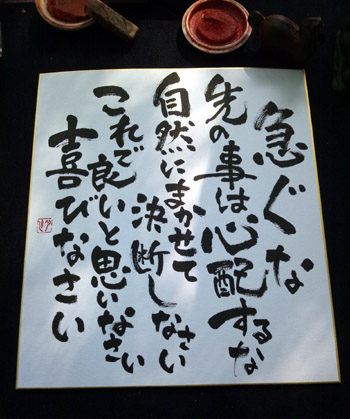 急ぐな
先の事は心配するな
自然にまかせて
決断しなさい
これで良いと思いなさい
喜びなさい